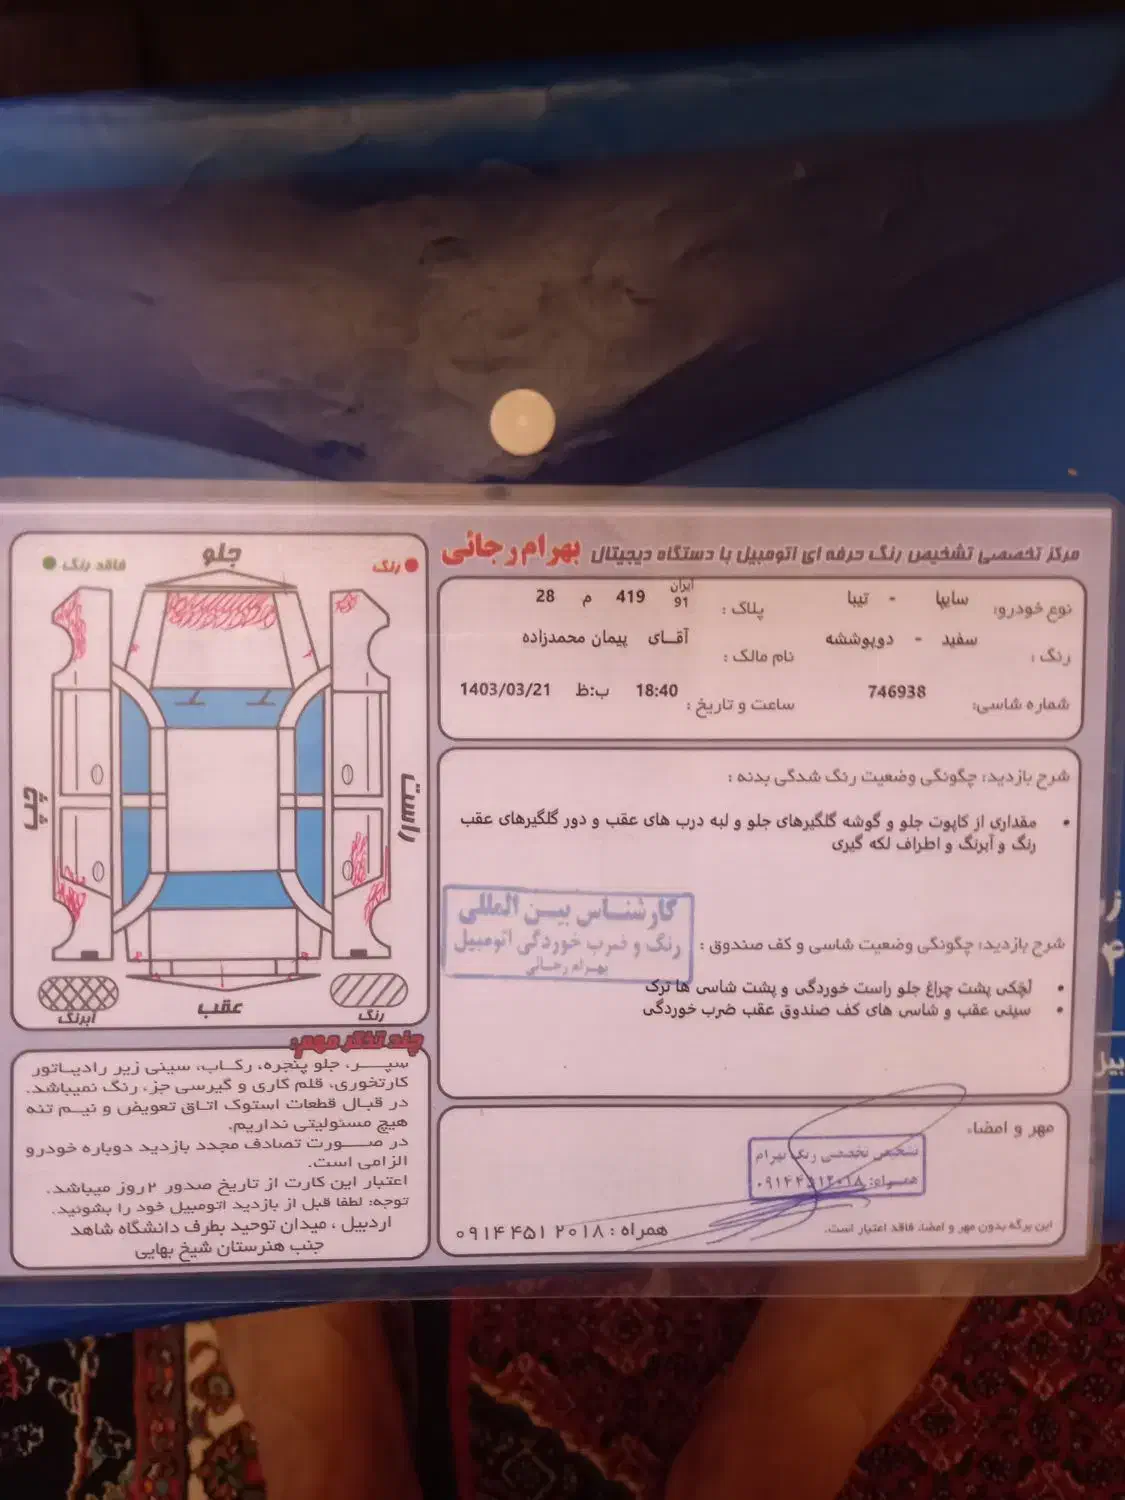 مرکز تخصصی تشخیص رنگ حرفه ای اتومبیل با دستگاه دیجیتال بهرام رجائی
نوع خودرو: سایپا - تیبا
پلاک : ایران 91 419 م 28
رنگ : سفید - دوپوششه
نام مالک : آقای پیمان محمدزاده
شماره شاسی: 746938
ساعت و تاریخ : 18:40 ب:ظ 1403/03/21
شرح بازدید: چگونگی وضعیت رنگ شدگی بدنه :
• مقداری از کاپوت جلو و گوشه گلگیرهای جلو و لبه درب های عقب و دور گلگیرهای عقب
رنگ و آبرنگ و اطراف لکه گیری
کارشناس بین المللی
رنگ و ضرب خوردگی اتومبیل
بهرام رجائی
شرح بازدید: چگونگی وضعیت شاسی و کف صندوق :
• لچکی پشت چراغ جلو راست خوردگی و پشت شاسی ها ترک
• سینی عقب و شاسی های کف صندوق عقب ضرب خوردگی
مهر و امضاء
تشخیص تخصصی رنگ بهرام
همراه: ۰۹۱۴۴۵۱۲۰۱۸
این برگه بدون مهر و امضاء فاقد اعتبار است.
همراه : ۰۹۱۴ ۴۵۱ ۲۰۱۸
رنگ
فاقد رنگ
جلو
راست
چپ
عقب
رنگ
آبرنگ
چند تذکر مهم:
سپر، جلو پنجره، رکاب، سینی زیر رادیاتور
کارتخوری، قلم کاری و گیرسی جز، رنگ نمیباشد.
در قبال قطعات استوک اتاق تعویض و نیم تنه
هیچ مسئولیتی نداریم.
در صورت تصادف مجدد بازدید دوباره خودرو
الزامی است.
اعتبار این کارت از تاریخ صدور ۲ روز میباشد.
توجه: لطفا قبل از بازدید اتومبیل خود را بشوئید.
اردبیل ، میدان توحید بطرف دانشگاه شاهد
جنب هنرستان شیخ بهایی